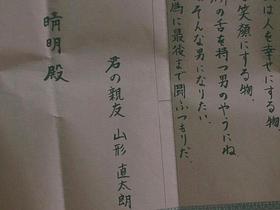 は人を幸せにする物
笑顔にする物.
の舌を持つ男のやうにね
そんな男になりたい.
為に最後まで闘ふつもりだ.
君の親友 山形 直太朗
晴明殿